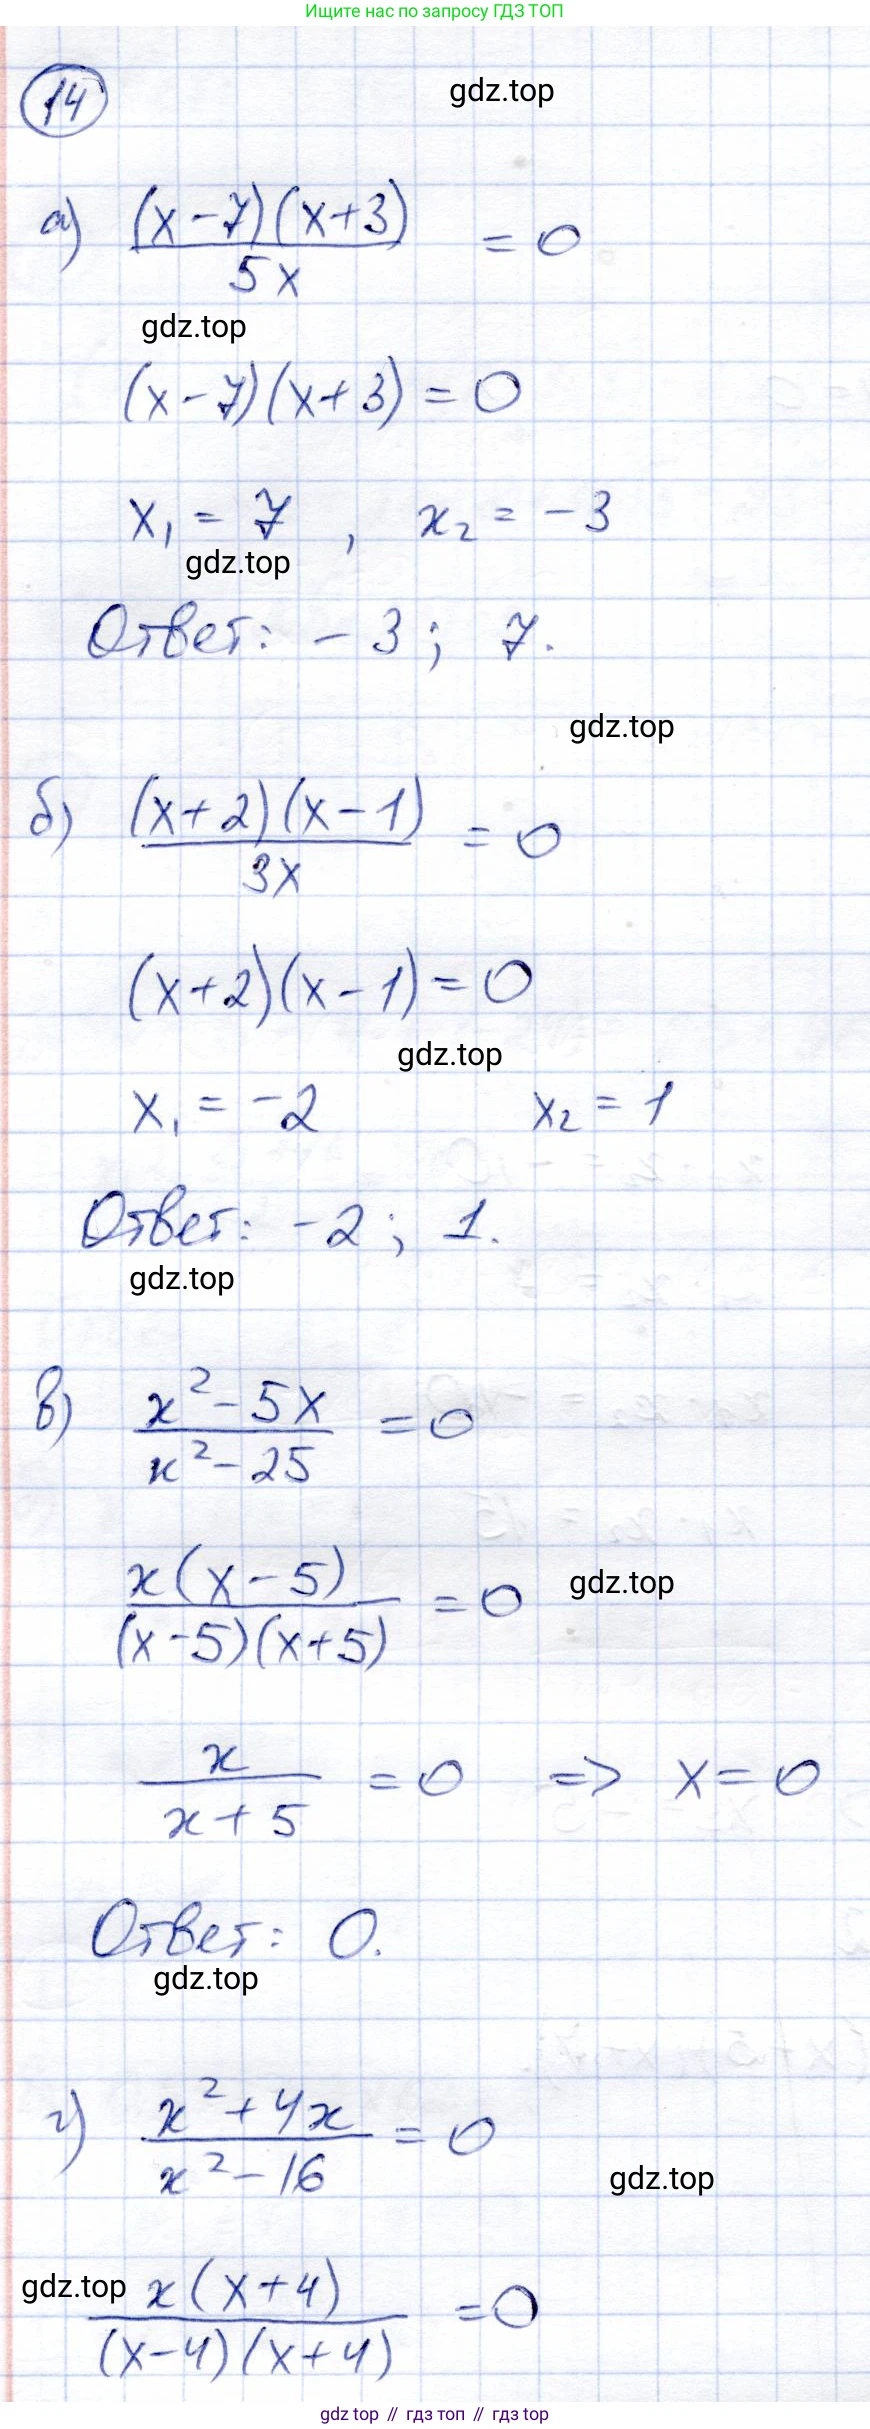 Ищите нас по запросу ГДЗ ТОП
14
gdz.top
а) (x-7)(x+3)/5x = 0
gdz.top
(x-7)(x+3) = 0
x₁ = 7 , x₂ = -3
gdz.top
Ответ: -3; 7.
gdz.top
б) (x+2)(x-1)/3x = 0
(x+2)(x-1) = 0
gdz.top
x₁ = -2 x₂ = 1
Ответ: -2; 1.
gdz.top
в) x²-5x/x²-25 = 0
x(x-5)/(x-5)(x+5) = 0
gdz.top
x/x+5 = 0 => x = 0
Ответ: 0.
gdz.top
г) x²+4x/x²-16 = 0
gdz.top
gdz.top
x(x+4)/(x-4)(x+4) = 0
gdz top // гдз топ // gdz top